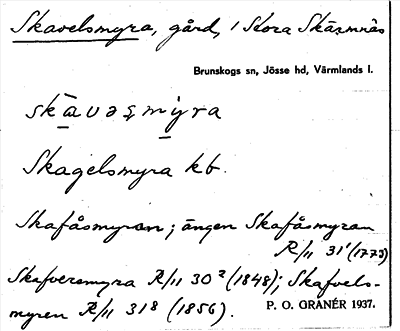 Skavelsmyra, gård, i Stora Skärmnäs
Brunskogs sn, Jösse hd, Värmlands l.
Skagelsmyra kb.
Skafåsmyran; ängen Skafåsmyran
R/11 31¹ (1773)
Skafveremyra R/11 30² (1848); Skafvels-
myren R/11 31⁸ (1856).
P. O. GRANÉR 1937.